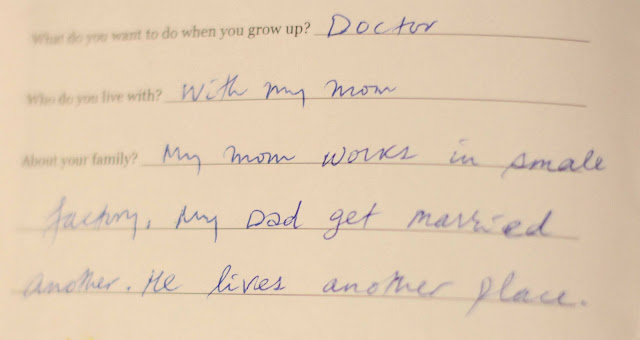 What do you want to do when you grow up? Doctor
Who do you live with? With my mom
About your family? My mom works in smale
factory, My Dad get married
another. He lives another place.